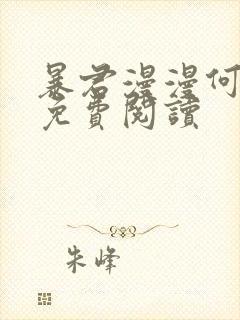 暴君漫漫何
免費閱讀
朱峰